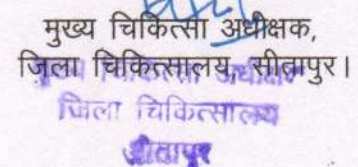 मुख्य चिकित्सा अधीक्षक,
जिला चिकित्सालय, सीतापुर।
जिला चिकित्सालय
सीतापुर